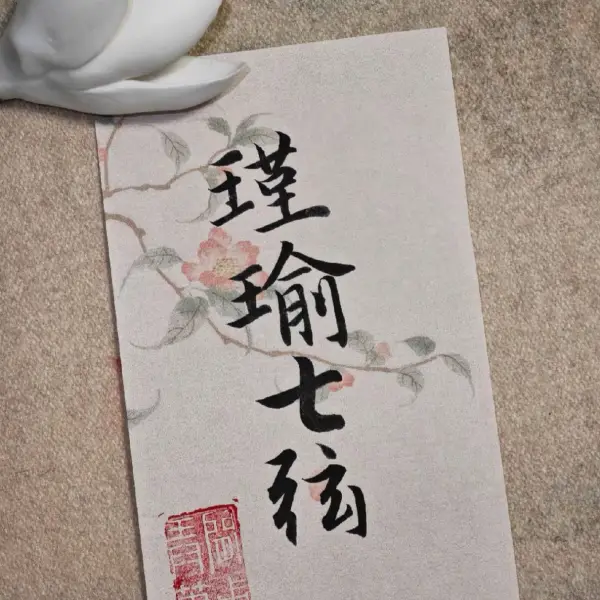 瑾瑜七弦